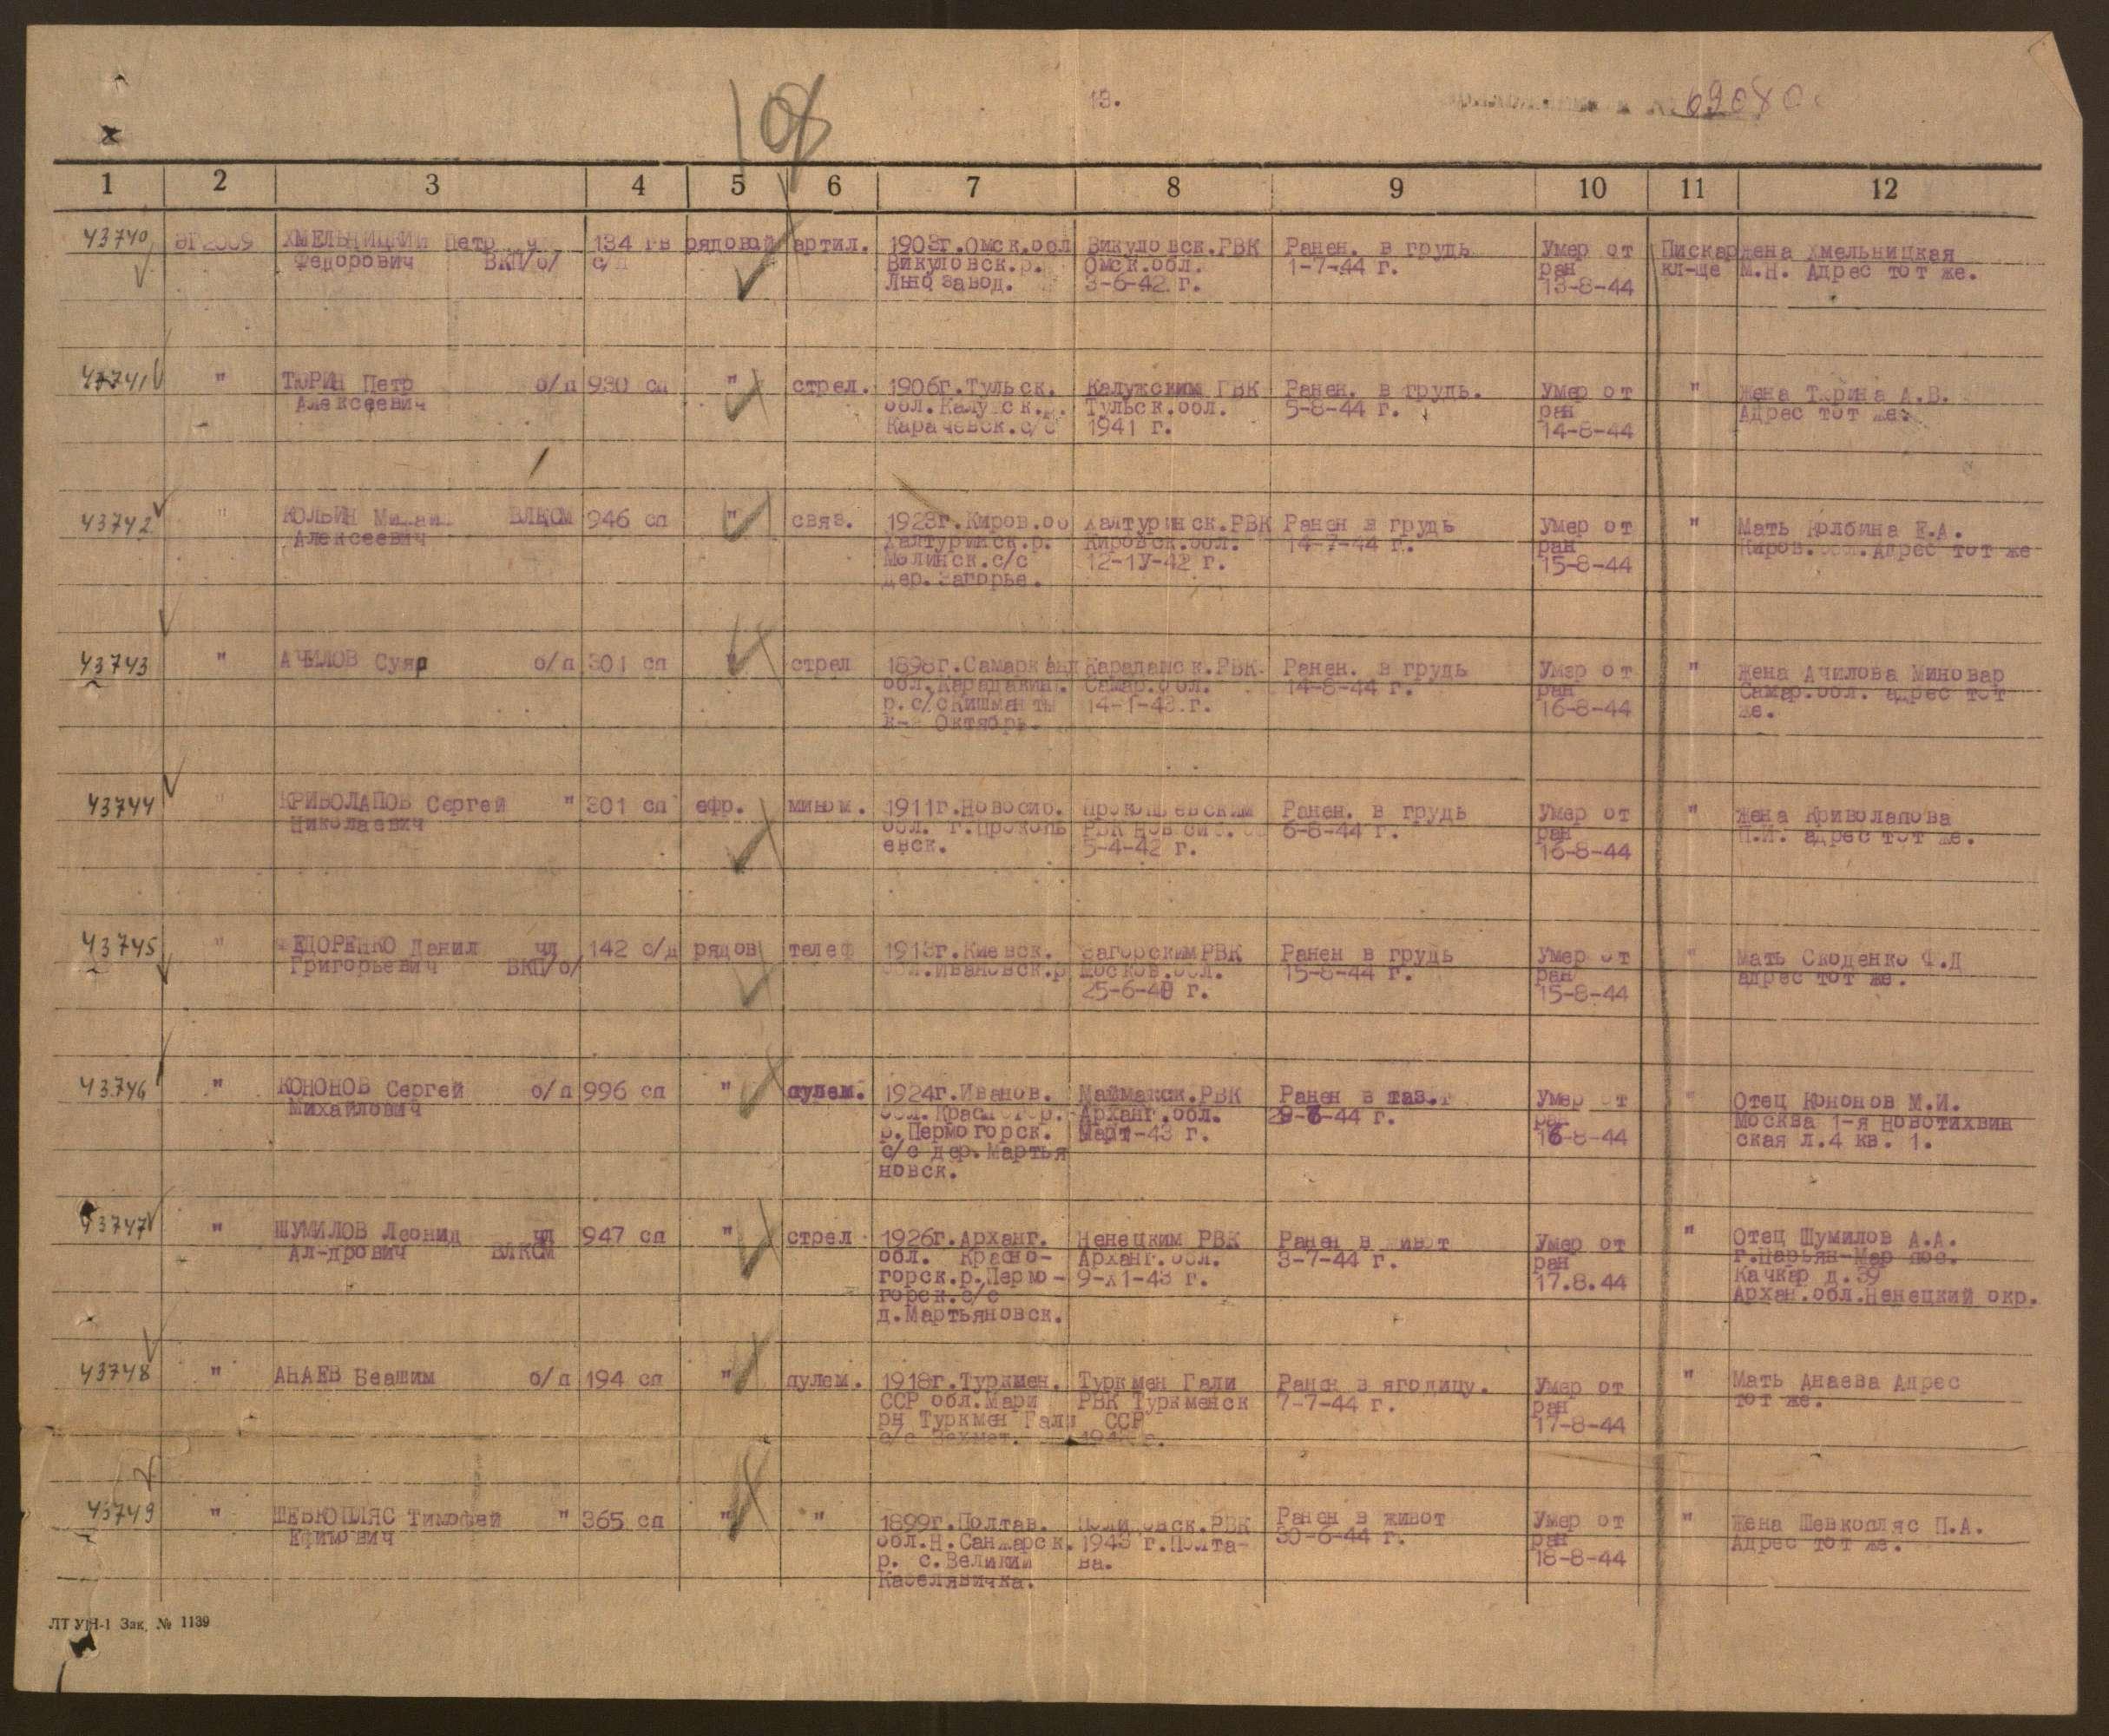 108
13.
1 2 3 4 5 6 7 8 9 10 11 12
43740 ЭГ2009 ХМЕЛЬНИЦКИЙ Петр ч. 134 гв рядовой артил. 1903г.Омск.обл Викуловск.РВК Ранен. в грудь Умер от Пискар Жена Хмельницкая
Федорович ВКП/б/ Викуловск.р. Омск.обл. 1-7-44 г. ран кл-ще М.Н. Адрес тот же.
завод. 3-6-42 г. 13-8-44
43741 " ТЮРИН Петр б/п 930 сп " стрел. 1906г.Тульск. Калужским ГВК Ранен. в грудь. Умер от " Жена Тюрина А.В.
Алексеевич обл. Тульск.обл. 5-8-44 г. ран Адрес тот же.
Карачевск.с/с 1941 г. 14-8-44
43742 " КОЛБИН Михаил ВЛКСМ 946 сп " связ. 1923г.Киров.об Халтуринск.РВК Ранен в грудь Умер от " Мать Колбина Е.А.
Алексеевич Халтуринск.р. Кировск.обл. 14-7-44 г. ран Киров.обл.Адрес тот же
Молинск.с/с 12-1У-42 г. 15-8-44
дер.Загорье.
43743 " АЧИЛОВ Суяр б/п 301 сп " стрел 1898г.Самарканд Ранен. в грудь Умер от " Жена Ачилова Миновар
обл. Самар.обл. 14-8-44 г. ран Самар.обл. адрес тот
р.с/с 14-1-43.г. 16-8-44 же.
к-з Октябрь.
43744 " КРИВОЛАПОВ Сергей " 301 сп ефр. мином. 1911г.Новосиб. Прокопьевским Ранен. в грудь Умер от " Жена Криволапова
Николаевич обл. г.Прокопь РВК Новосиб. 6-8-44 г. ран П.И. адрес тот же.
евск. 5-4-42 г. 16-8-44
43745 " ФЕДОРЕНКО Данил чл 142 с/д рядов телеф 1913г.Киевск. ЗагорскимРВК Ранен в грудь Умер от " Мать Скоденко Ф.Д
Григорьевич ВКП/б/ обл.Ивановск.р Москов.обл. 15-8-44 г. ран адрес тот же.
25-6-40 г. 15-8-44
43746 " КОНОНОВ Сергей б/п 996 сп " пулем. 1924г.Иванов. Маймакск.РВК Ранен в таз. Умер от " Отец Кононов М.И.
Михайлович обл. Арханг.обл. -44 г. ран Москва 1-я Новотихвин
р.Пермогорск. Март-43 г. 16-8-44 ская л.4 кв. 1.
с/с дер.Мартья
новск.
43747 " ШУМИЛОВ Леонид чл 947 сп " стрел 1926г.Арханг. Ненецким РВК Ранен в живот Умер от " Отец Шумилов А.А.
Ал-дрович ВЛКСМ обл. Красно- Арханг.обл. 3-7-44 г. ран г.Нарьян-Мар пос.
горск.р.Пермо- 9-х1-43 г. 17.8.44 Качкар д.39
горск.с/с Архан.обл.Ненецкий окр.
д.Мартьяновск.
43748 " АНАЕВ Беашим б/п 194 сп " пулем. 1918г.Туркмен. Туркмен Гали Ранен в ягодицу. Умер от " Мать Анаева Адрес
ССР обл.Мари РВК Туркменск 7-7-44 г. ран тот же.
рн Туркмен Гали ССР 17-8-44
с/с
43749 " ШЕВКОПЛЯС Тимофей " 365 сп " " 1899г.Полтав. Ранен в живот Умер от " Жена Шевкопляс П.А.
Ефимович обл.Н.Санжарск. 1943 г.Полта- 30-6-44 г. ран Адрес тот же.
р. с.Великий ва. 18-8-44
ЛТ УПН-1 Зак. № 1139